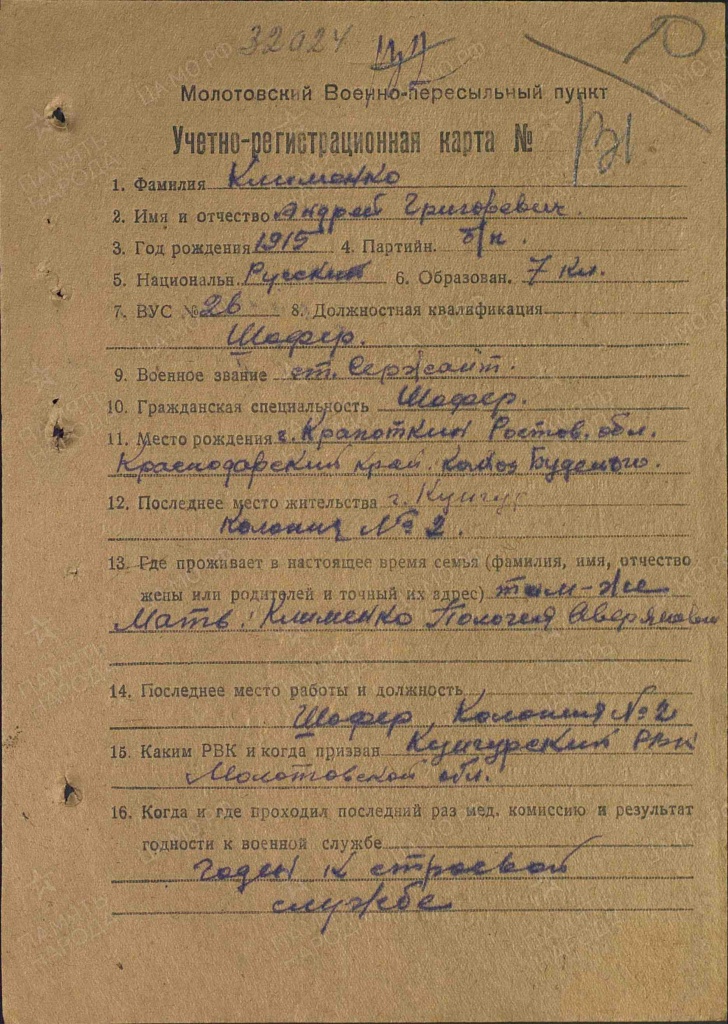 32024
Молотовский Военно-пересыльный пункт
Учетно-регистрационная карта №
1. Фамилия Клименко
2. Имя и отчество Андрей Григоревич.
3. Год рождения 1915 4. Партийн. б/п.
5. Национальн. Русский 6. Образован. 7 кл.
7. ВУС № 26 8. Должностная квалификация
Шофер.
9. Военное звание ст. Сержант.
10. Гражданская специальность Шофер.
11. Место рождения г. Крапоткин Ростов. обл.
Краснодарский край. Колхоз Буденого.
12. Последнее место жительства г. Кунгур
Колония № 2.
13. Где проживает в настоящее время семья (фамилия, имя, отчество
жены или родителей и точный их адрес) там-же
Мать: Клименко Аверяновна
14. Последнее место работы и должность
Шофер, Колония № 2
15. Каким РВК и когда призван Кунгурский РВК
Молотовской обл.
16. Когда и где проходил последний раз мед. комиссию и результат
годности к военной службе
годен к строевой
службе